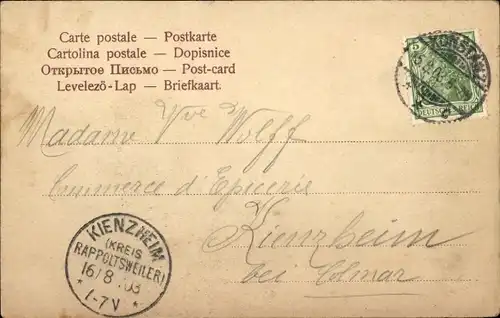 Carte postale — Postkarte
Cartolina postale — Dopisnice
Открытое Письмо — Post-card
Levelező-Lap — Briefkaart.
5
DEUTSCHES REICH
Madame Vve Wolff
Commerce d'Epicerie
Kienzheim
bei Colmar
KIENZHEIM
(KREIS
RAPPOLTSWEILER)
16/8.03
* 1-7V *